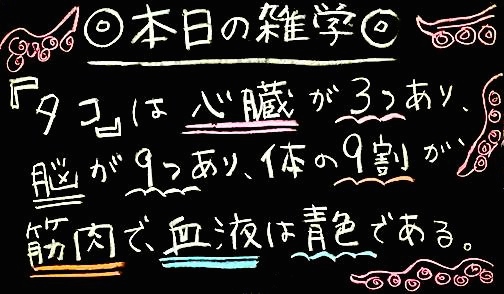 ◎本日の雑学◎
『タコ』は心臓が3つあり、
脳が9つあり、体の9割が、
筋肉で、血液は青色である。